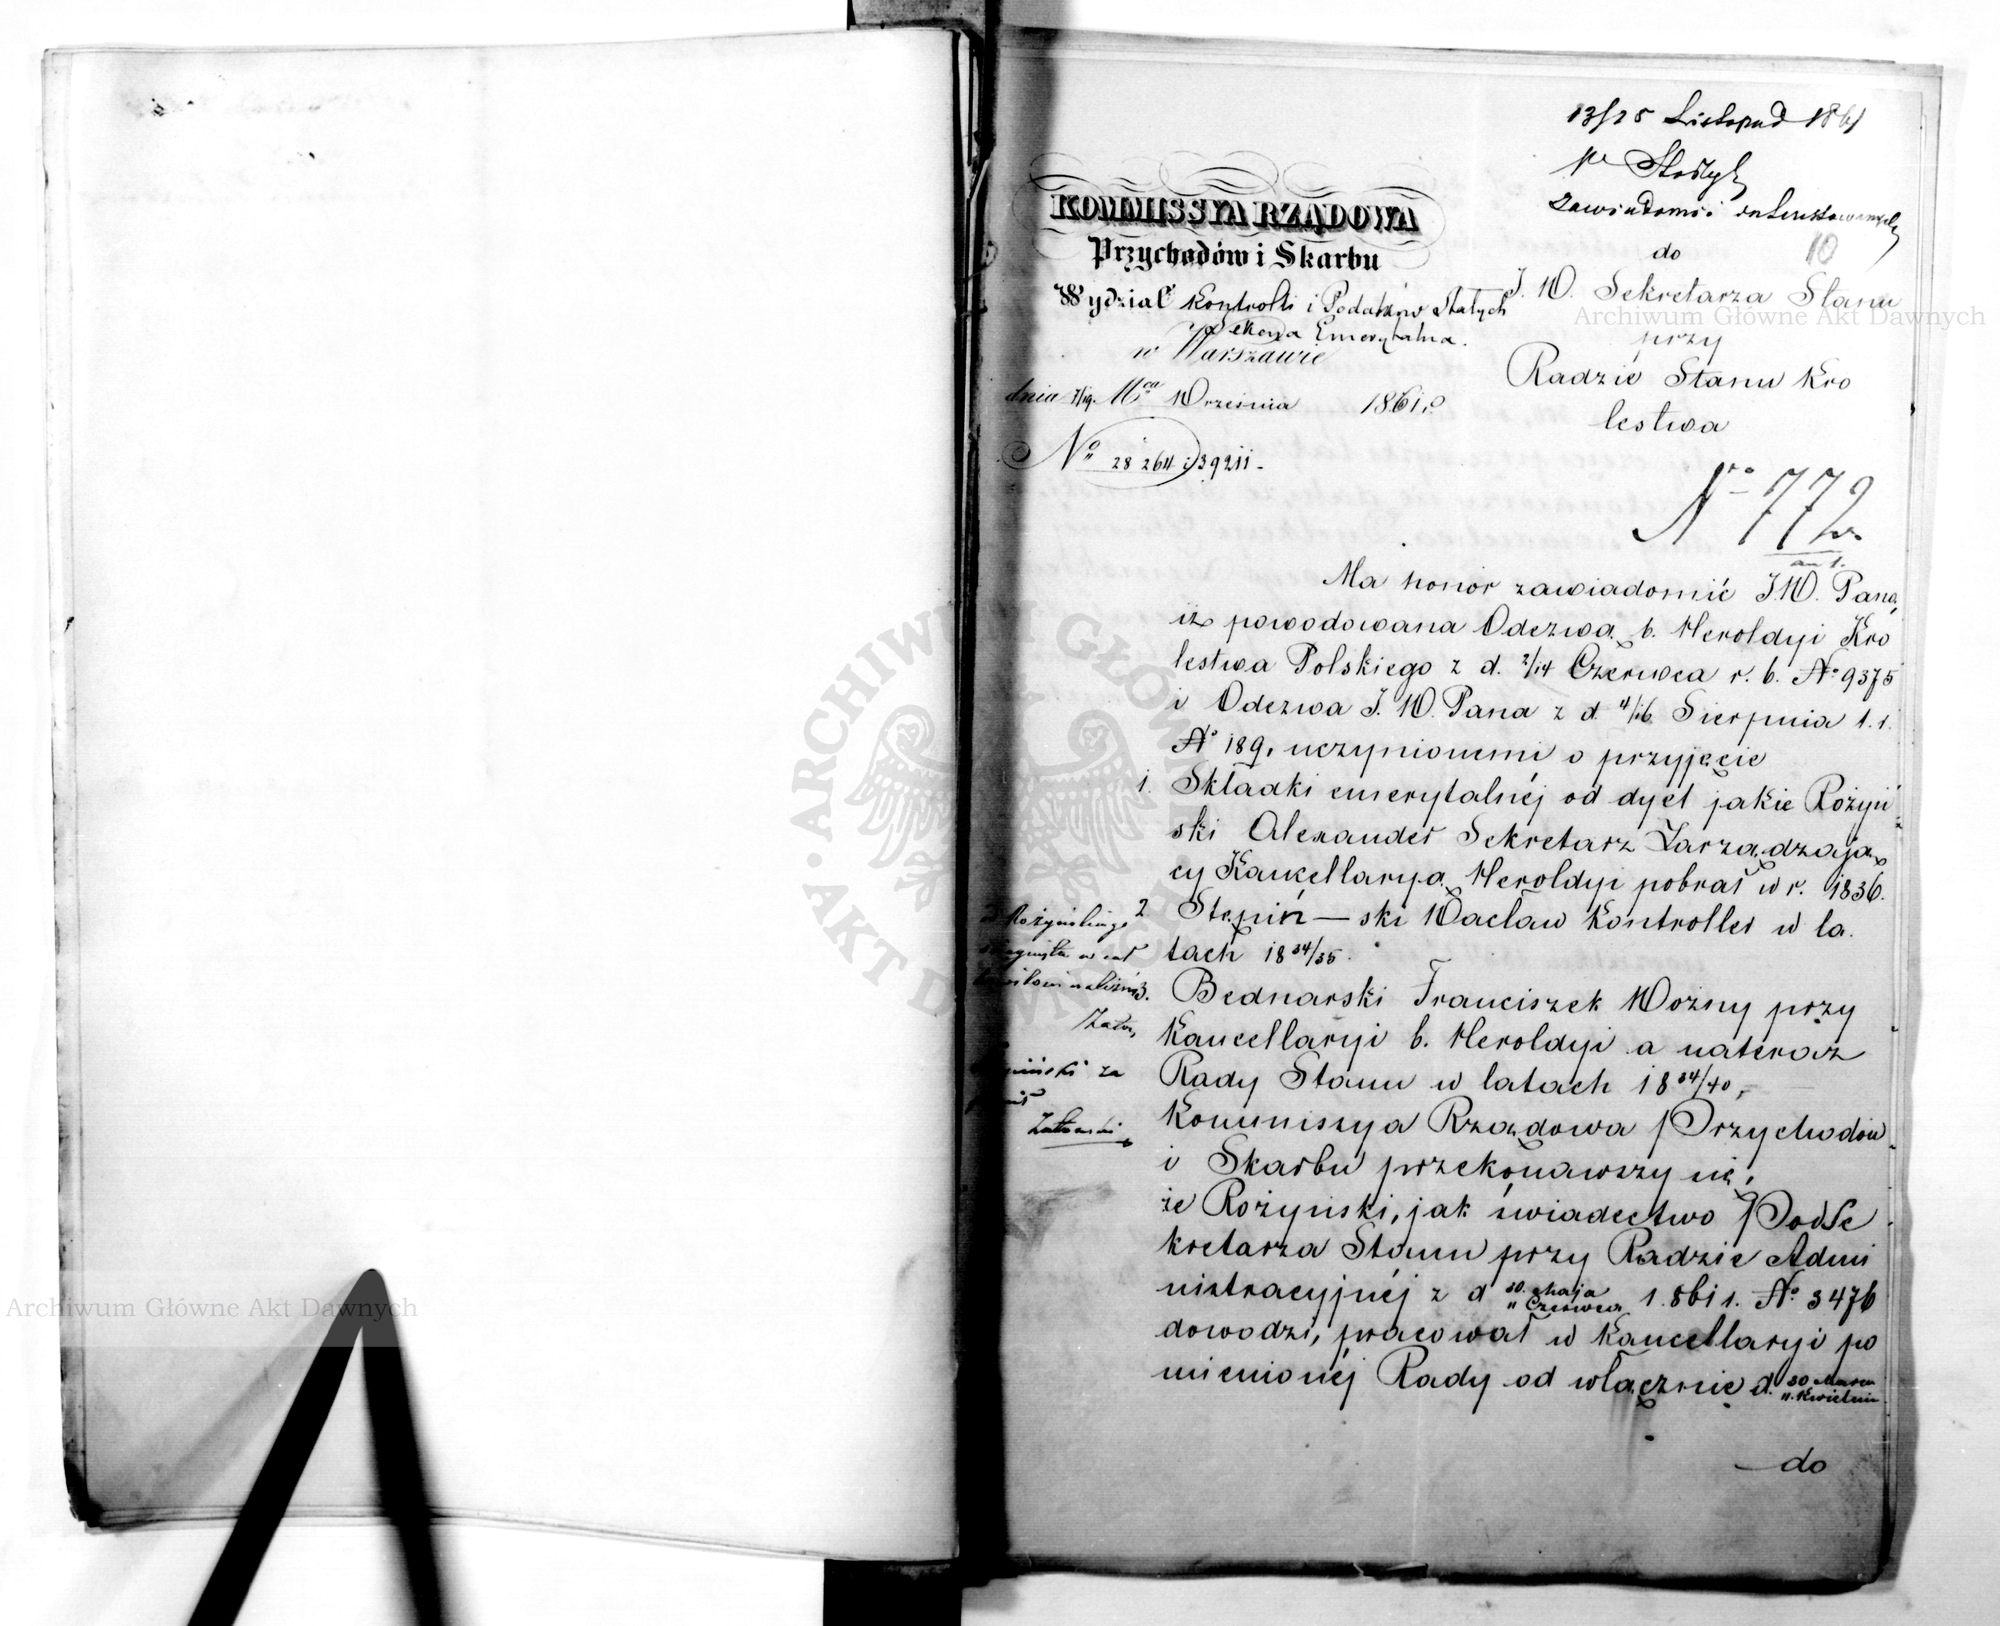 13/25 Listopad 1861
zawiadomić interessowanych
10
KOMMISSYA RZĄDOWA
Przychodów i Skarbu
Wydział Kontrolli i Podatków Stałych
Sekcya Emerytalna.
w Warszawie
dnia 7/19 Mca Września 1861 r.
No 28264 i 39211
do
J. W. Sekretarza Stanu
przy
Radzie Stanu Kro
lestwa
No 772
Ma honor zawiadomić J.W. Pana,
iż powodowana Odezwą b. Heroldyi Kro
lestwa Polskiego z d. 2/14 Czerwca r. b. No 9375
i Odezwa J. W. Pana z d. 4/16 Sierpnia r. t.
No 189, uczynionemi o przyjęcie
1. Składki emerytalnéj od dyet jakie Rożyń
ski Alexander Sekretarz Zarządzają
cy Kancellaryą Heroldyi pobrał w r. 1836.
2 Stępiń — ski Wacław Kontroller w la
tach 1834/35.
3. Bednarski Franciszek Woźny przy
Kancellaryi b. Heroldyi a nateraz
Rady Stanu w latach 1834/40,
Kommissya Rządowa Przychodów
i Skarbu przekonawszy się,
że Rożyński, jak świadectwo PodSe
kretarza Stanu przy Radzie Admi
nistracyjnéj z d 30. Maja
11 Czerwca 1861 r. No 3476
dowodzi, pracował w Kancellaryi po
mienionéj Rady od włącznie d. 30 Marca
11. Kwietnia
do
Rożyńskiego
za
Archiwum Główne Akt Dawnych
Archiwum Główne Akt Dawnych
ARCHIWUM GŁÓWNE AKT DAWNYCH